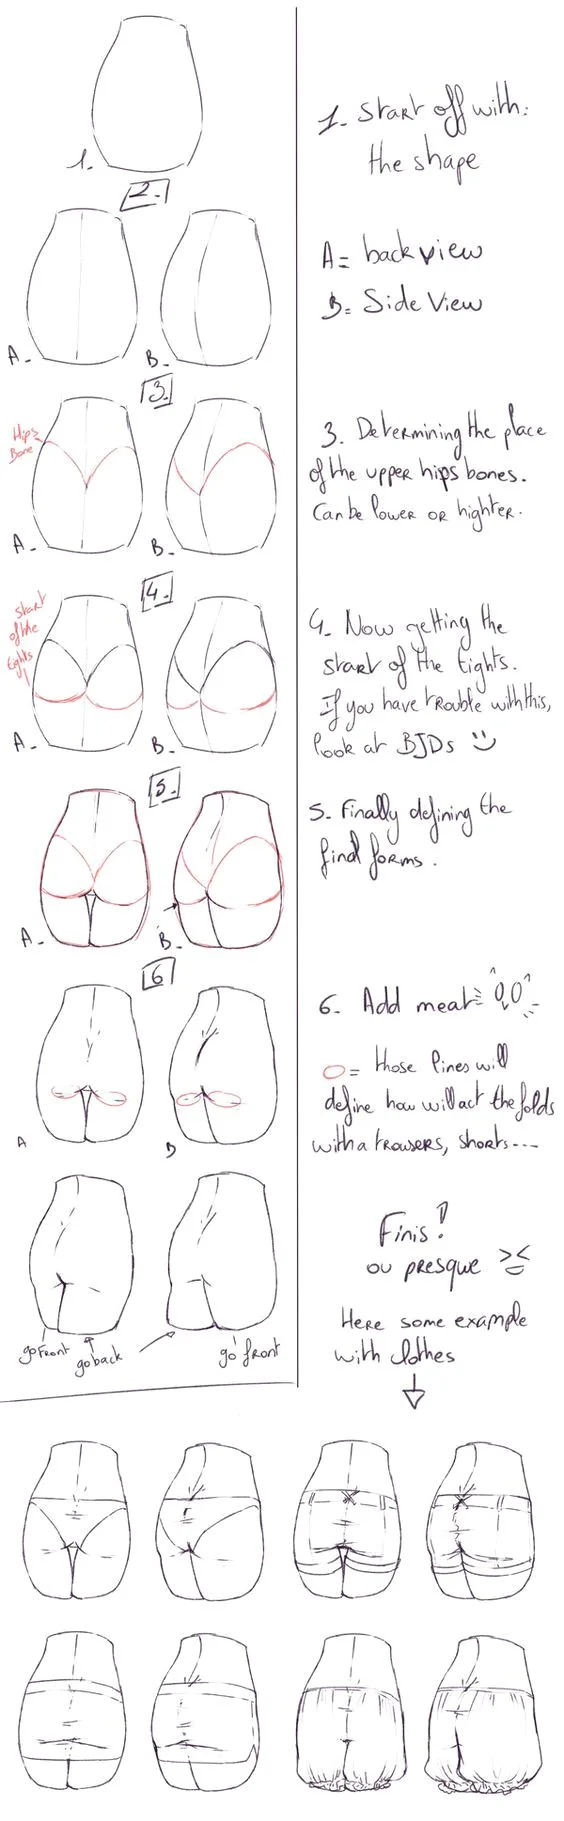 1.
1. Start off with:
the shape
2.
A= back view
B= Side View
A-
B-
3.
Hips
Bone
3. Determining the place
of the upper hips bones.
Can be lower or highter.
A-
B-
4.
start
of the
tights
4. Now getting the
start of the tights.
If you have trouble with this,
look at BJDs
A-
B-
5.
5. Finally defining the
final forms.
A-
B-
6
6- Add meat
= those lines will
define how will act the folds
with a trousers, shorts---
A
B
Finis!
ou presque ><
Here some example
with clothes
go front
go back
go front